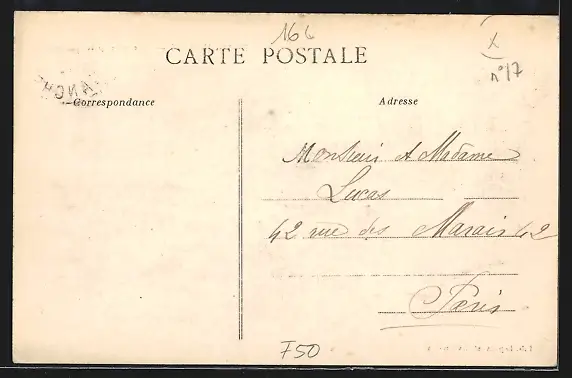 166
CARTE POSTALE
X
n°17
Correspondance
Adresse
Monsieur et Madame
Lucas
42 rue des Marais 42
Paris
F50